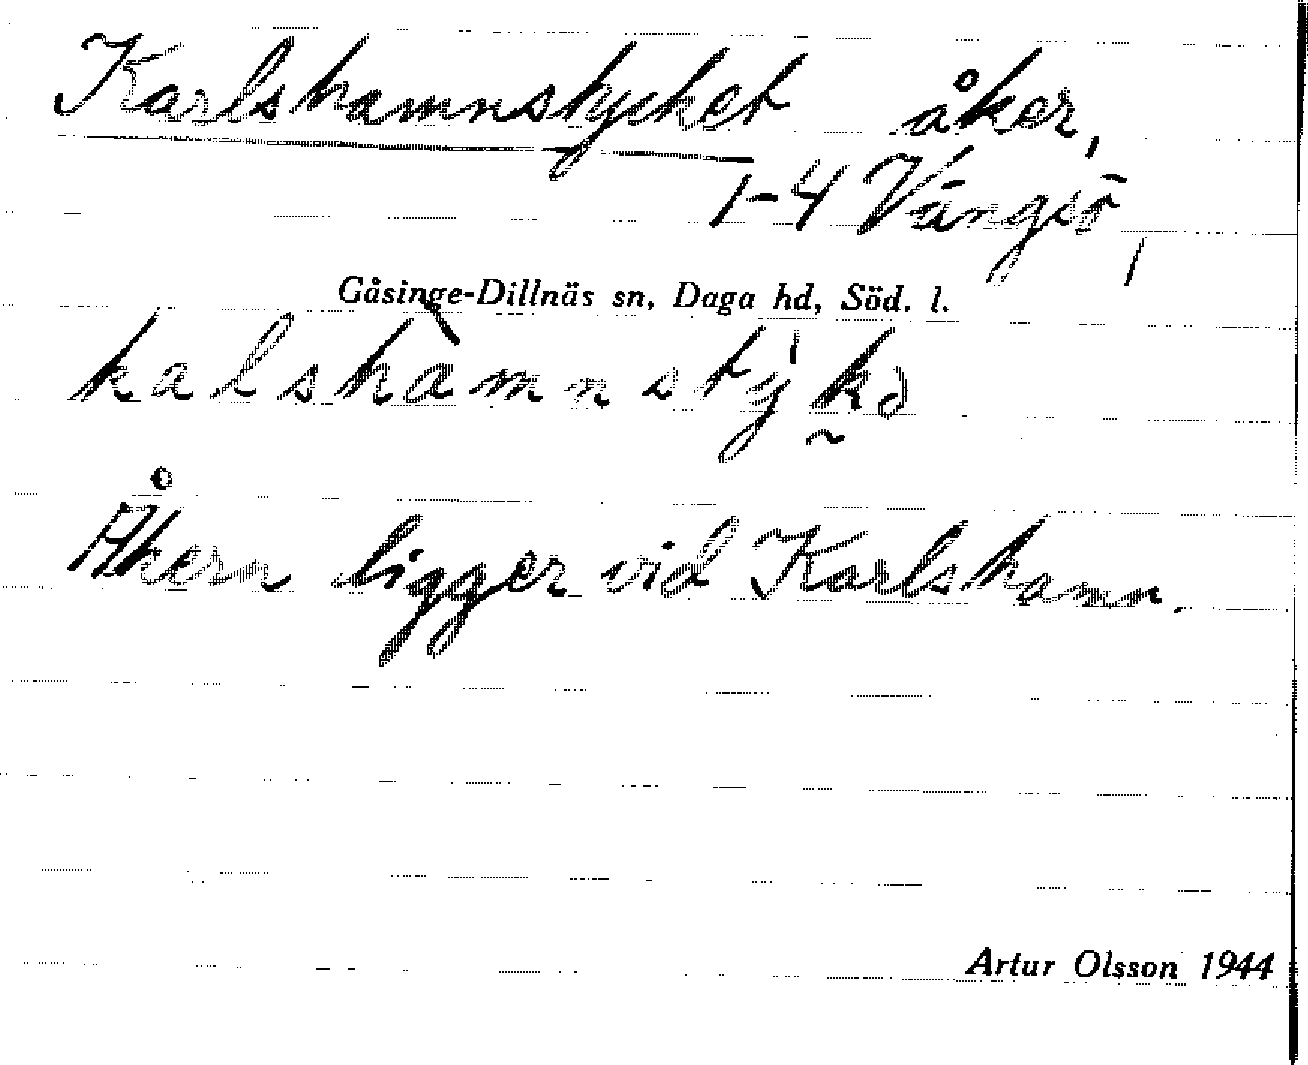 Karlshamnstycket åker,
1-4 Vängsö,
Gåsinge-Dillnäs sn, Daga hd, Söd. l.
kalshàmnstýkə
Åkern ligger vid Karlshamn.
Artur Olsson 1944